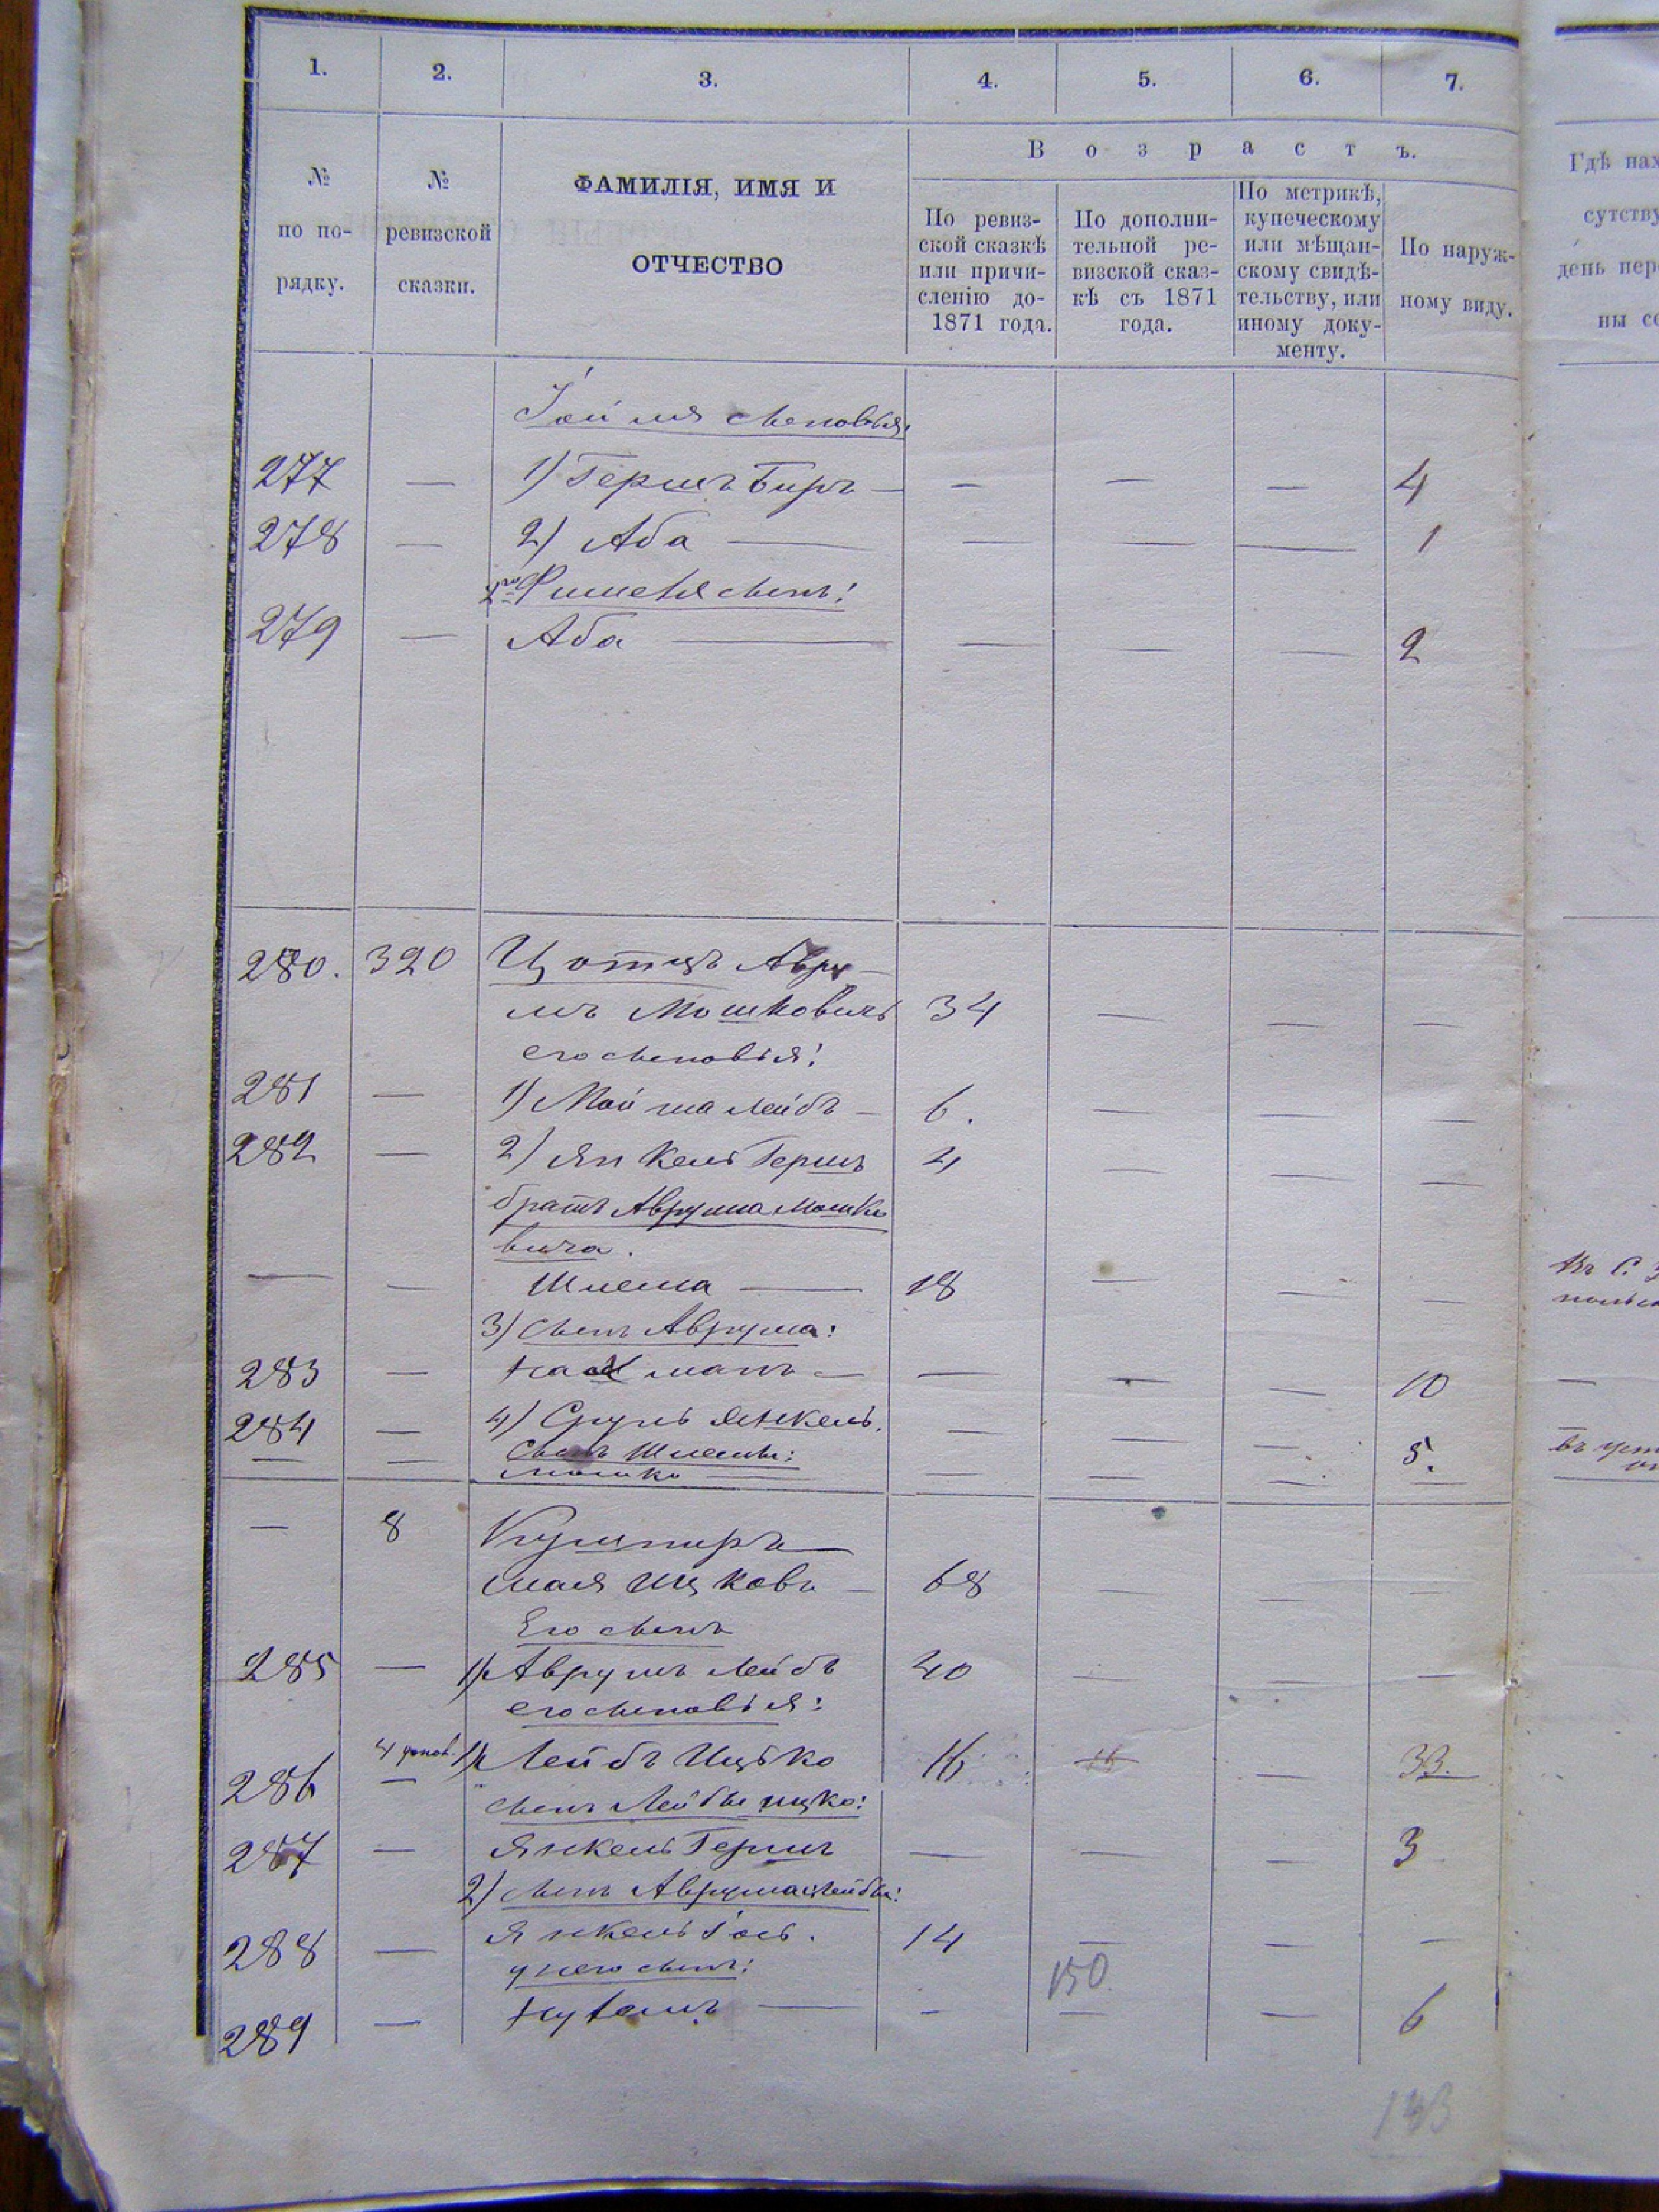 1. 2. 3. 4. 5. 6. 7.
№ по по-рядку.
№ ревизской сказки.
ФАМИЛІЯ, ИМЯ И ОТЧЕСТВО
Возрастъ.
По ревиз-ской сказкѣ или причи-сленію до-1871 года.
По дополни-тельной ре-визской сказ-кѣ съ 1871 года.
По метрикѣ, купеческому или мѣщан-скому свидѣ-тельству, или иному доку-менту.
По наруж-ному виду.
Гдѣ нах
сутству
день пер
ны со
сыновья:
277 — 1) Гершъ Беръ — — — — 4
278 — 2) Аба — — — — 1
сынъ:
279 — Аба — — — — 2
280. 320 Авру-
мъ Мошковичъ 34 — — —
его сыновья:
281 — 1) Мойша Лейбъ — 6. — — —
282 — 2) Янкель Гершъ 4 — — —
братъ Аврума Мошко
вича.
— — Шлема — 18 — — —
3) сынъ Аврума:
283 — Нахманъ — — — — 10
284 — 4) Сруль Янкель. — — — 5.
— — сынъ Шлемы:
Мошко — — — —
— 8 Кушниръ
Ицковъ — 68 — — —
Его сынъ
285 — 1) Аврумъ Лейбъ 40 — — —
его сыновья:
286 — 1) Лейбъ Ицько 16 16 — 33.
сынъ Лейбы Ицко:
287 — Янкель Гершъ — — — 3
2) сынъ Аврума Лейбы:
288 — Янкель 14 — — —
у него сынъ:
150
289 — — — — 6
133